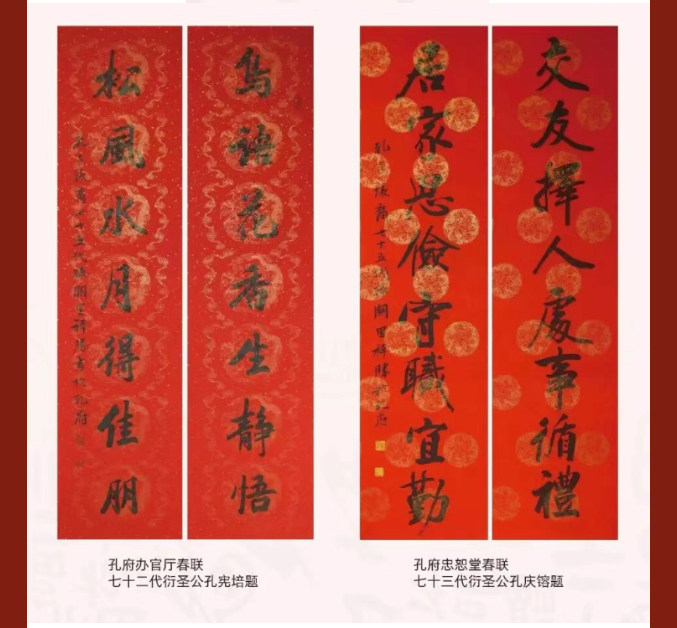 鸟語花香生静悟
松風水月得佳朋
交友擇人處事循禮
居家思儉守職宜勤
孔府办官厅春联
七十二代衍圣公孔宪培题
孔府忠恕堂春联
七十三代衍圣公孔庆镕题